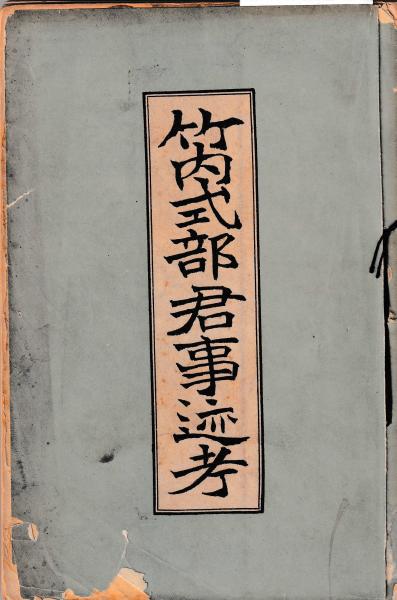 竹内式部君事迹考